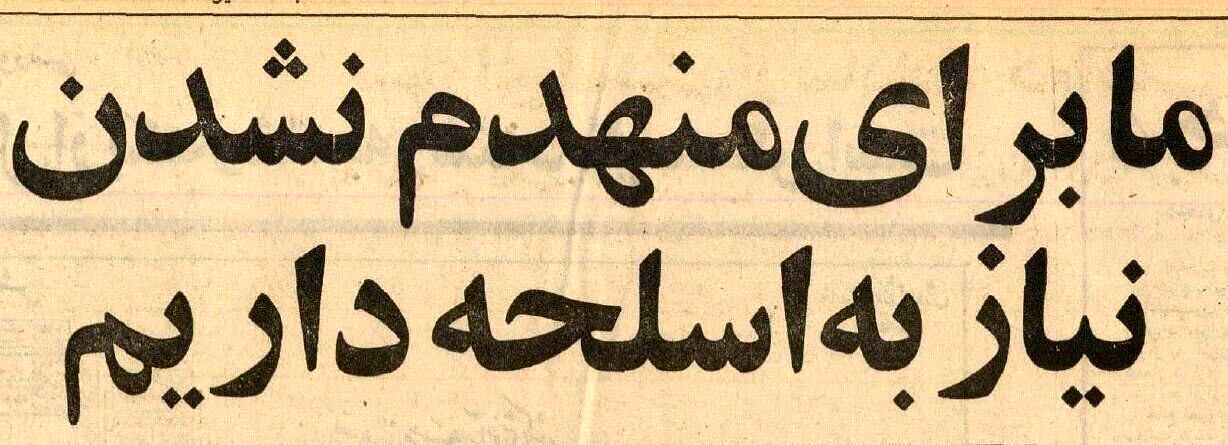 ما برای منهدم نشدن
نیاز به اسلحه داریم